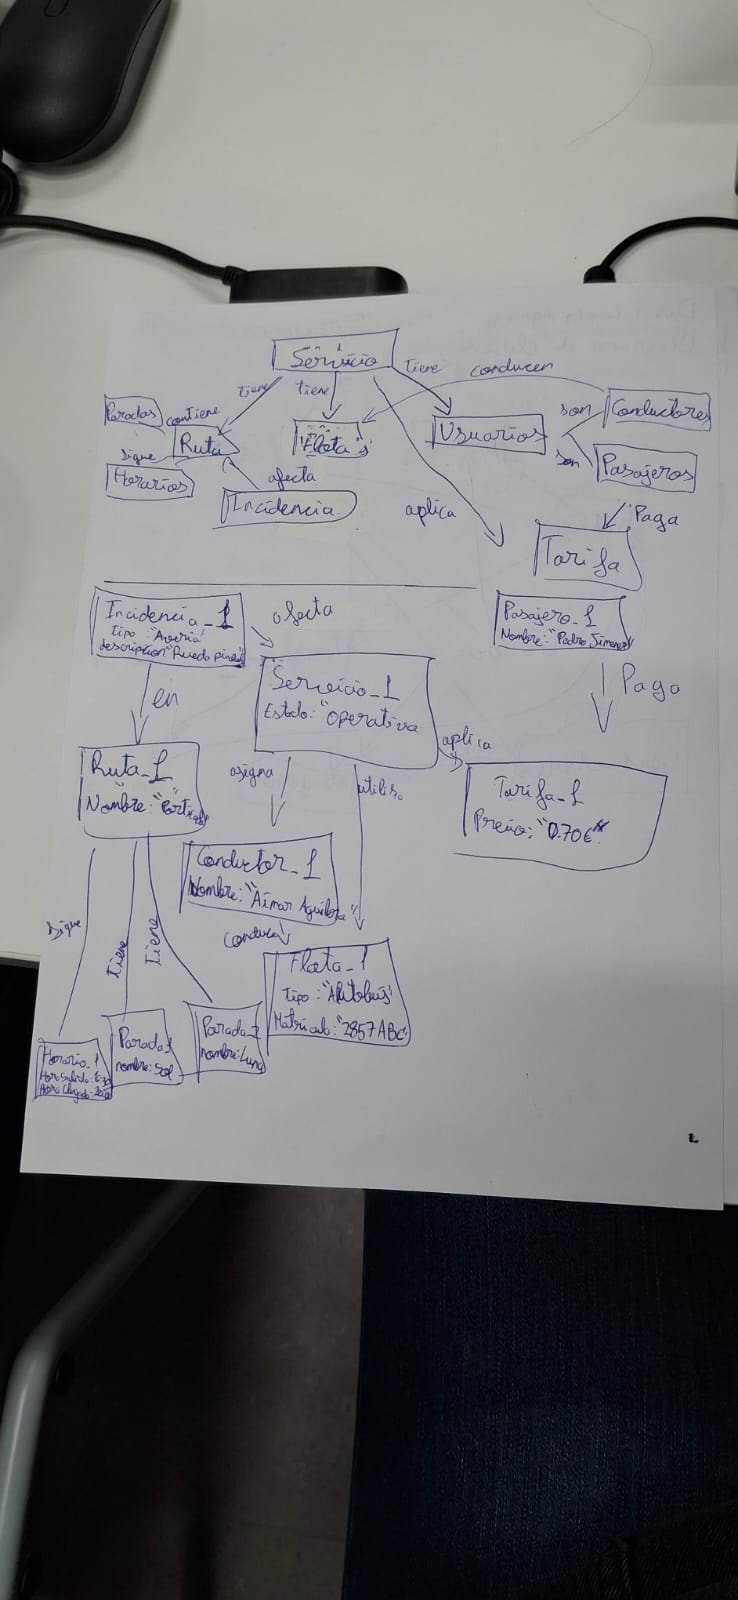 Servicio
tiene
tiene
tiene
conducen
Paradas
contiene
Ruta
sigue
Horarios
Flota
Usuarios
son
Conductores
son
Pasajeros
afecta
Incidencia
aplica
Paga
Tarifa
Incidencia_1
Tipo: "Averia"
descripcion "Rueda
afecta
Pasajero_1
Nombre: "Pedro Jimenez"
en
Servicio_1
Estado: "Operativa
Paga
aplica
Ruta_1
Nombre:
asigna
utiliza
Tarifa_1
Precio: "0.70€"
Conductor_1
Nombre: "Aimar Aguilera"
conduce
sigue
tiene
tiene
Flota_1
Tipo: "Autobús"
Matricula: "2857ABC"
Horario_1
Hora Salida:
Hora Llegada:
Parada_1
nombre: Sol
Parada_2
nombre: Luna